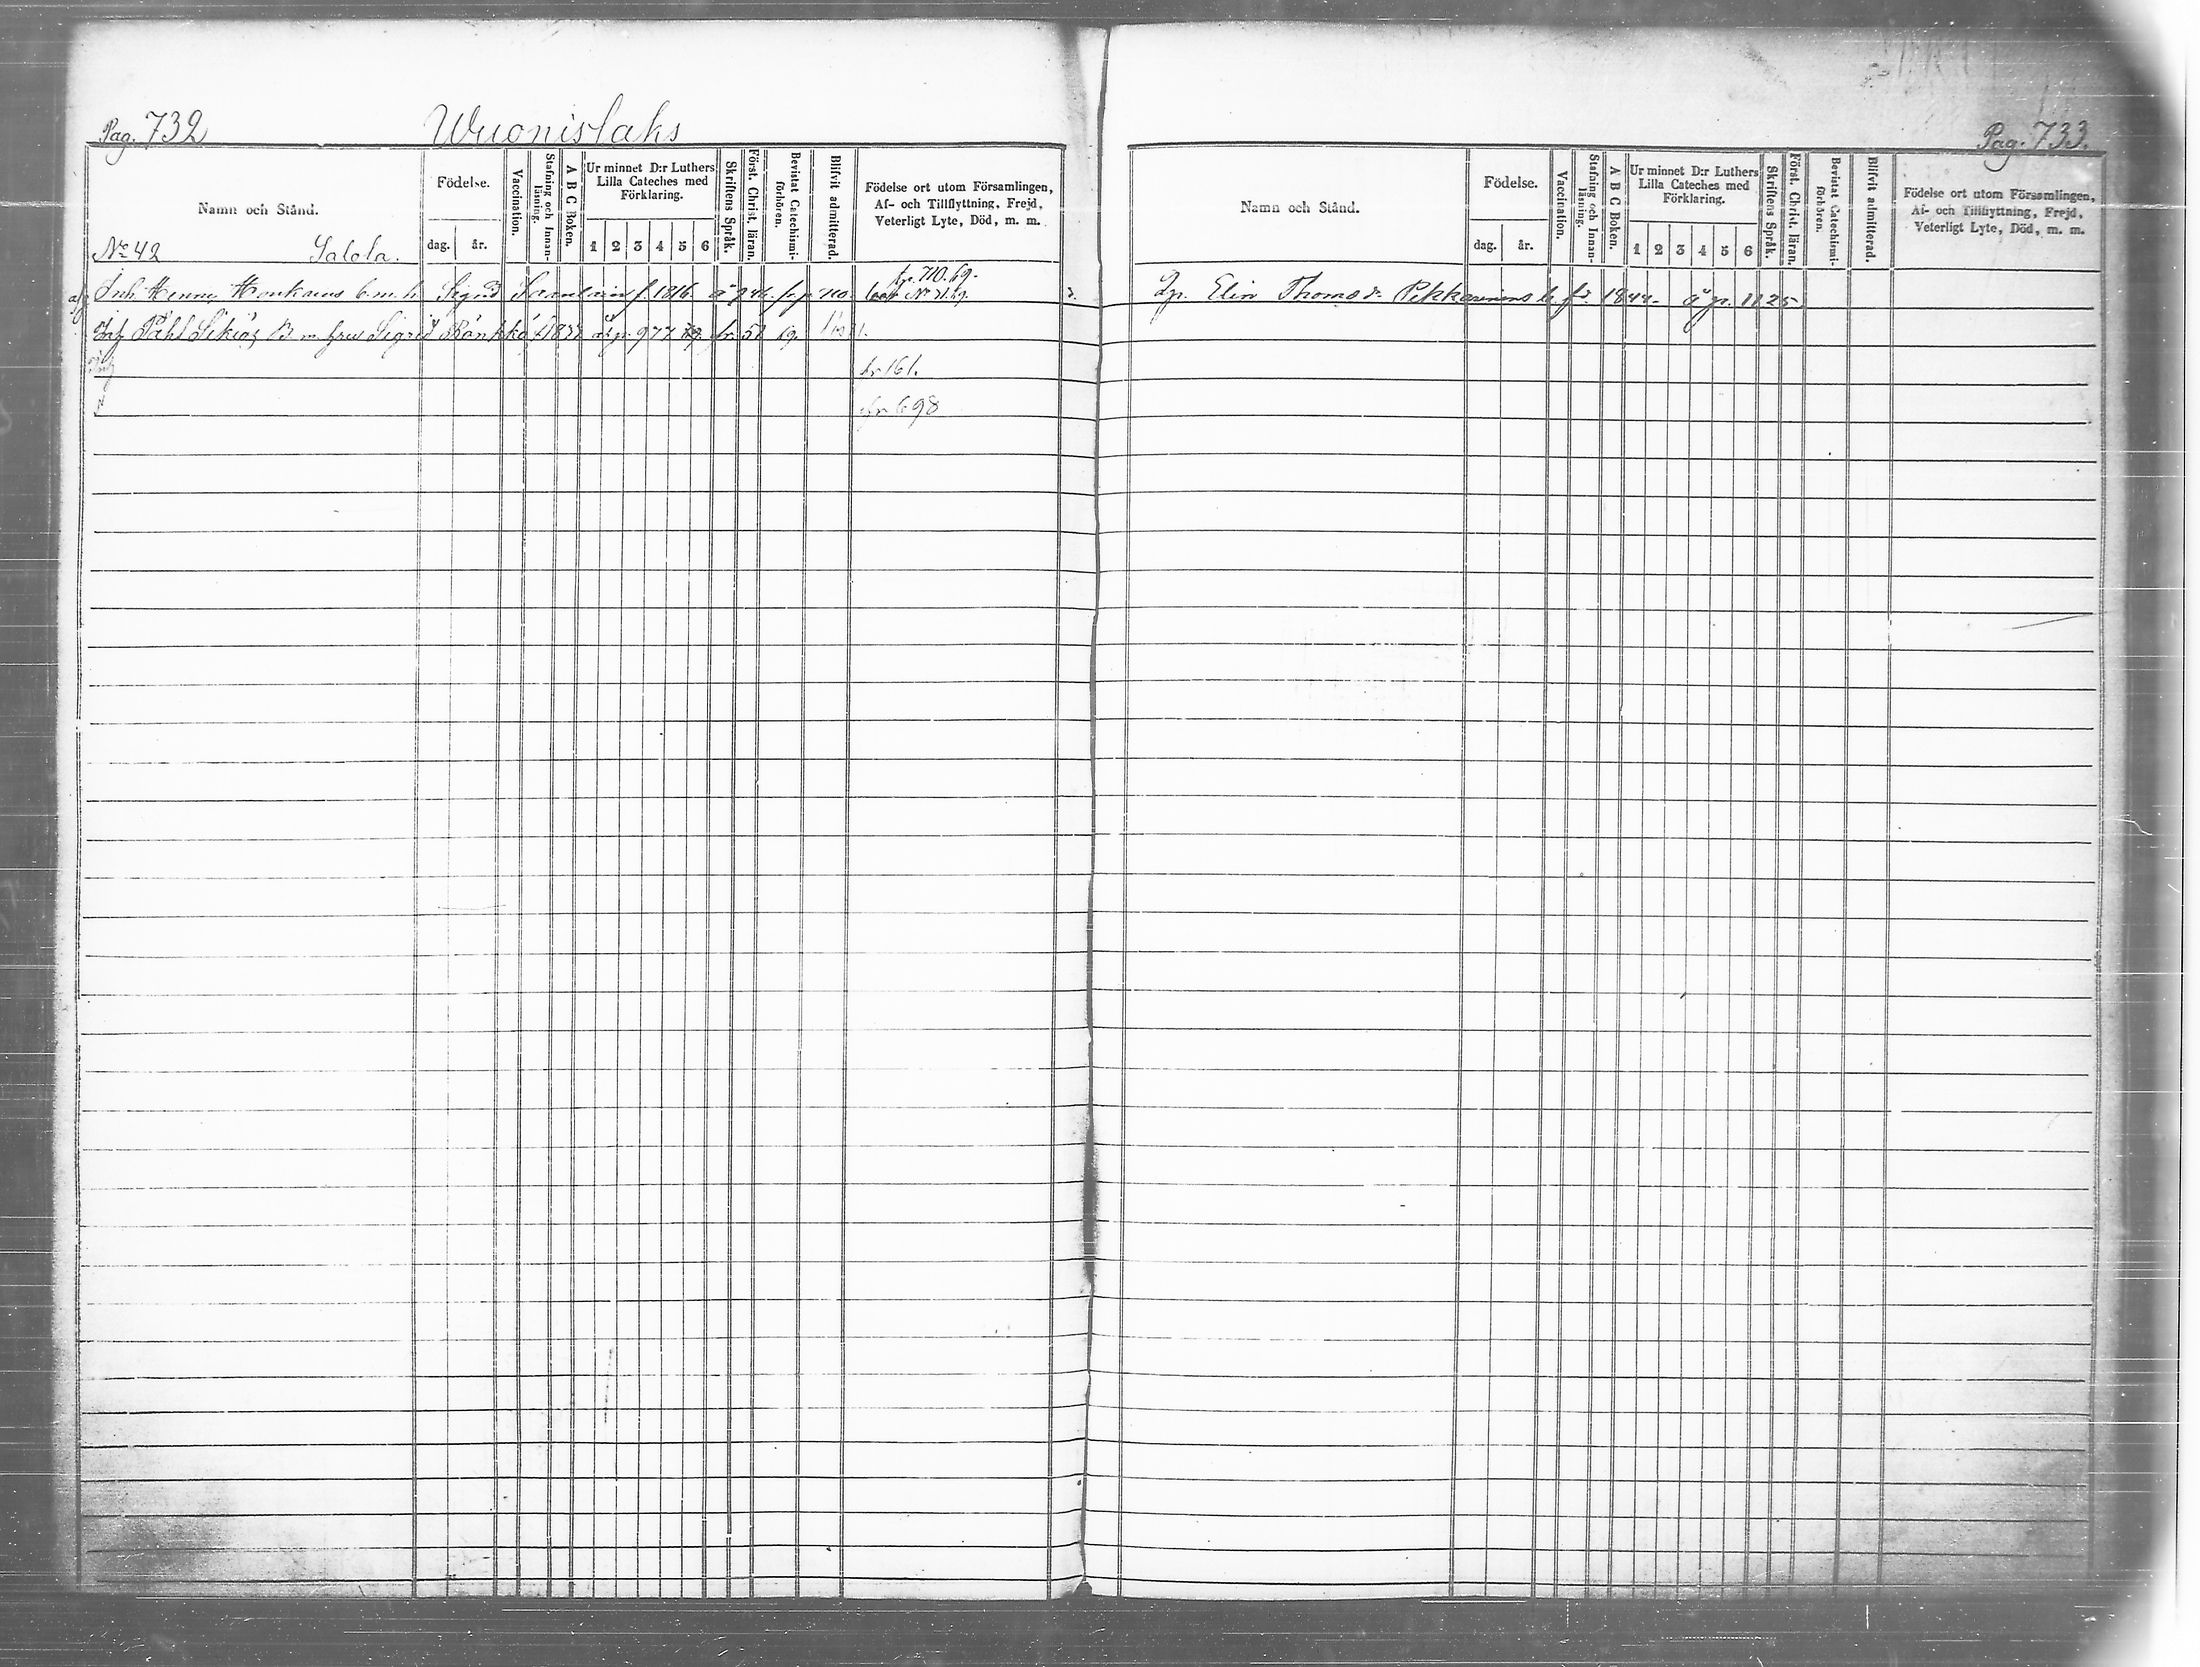 Pag. 732 Wuonislaks
Namn och Stånd.
Födelse.
dag. år.
Vaccination.
Stafning och Innanläsning.
A B C Boken.
Ur minnet D:r Luthers
Lilla Cateches med
Förklaring.
1 2 3 4 5 6
Skriftens Språk.
Först. Christ. läran.
Bevistat Catechismiförhören.
Blifvit admitterad.
Födelse ort utom Församlingen,
Af- och Tillflyttning, Frejd,
Veterligt Lyte, Död, m. m.
No 42 Salola.
fr. 710. 69.
Inh. Henr. Honkanens Sigrid f. 1816. å p. fr. p. 710. No 71. 69.
Påhl B. m. hru Sigrid Rönkkö å p. 977 fr. 51 69.
fr 161.
fr 698
Pag. 733.
Namn och Stånd.
Födelse.
dag. år.
Vaccination.
Stafning och Innanläsning.
A B C Boken.
Ur minnet D:r Luthers
Lilla Cateches med
Förklaring.
1 2 3 4 5 6
Skriftens Språk.
Först. Christ. läran.
Bevistat Catechismiförhören.
Blifvit admitterad.
Födelse ort utom Församlingen,
Af- och Tillflyttning, Frejd,
Veterligt Lyte, Död, m. m.
Elin Thoms dr Pekkarinens fd. 1844. å p. 1125